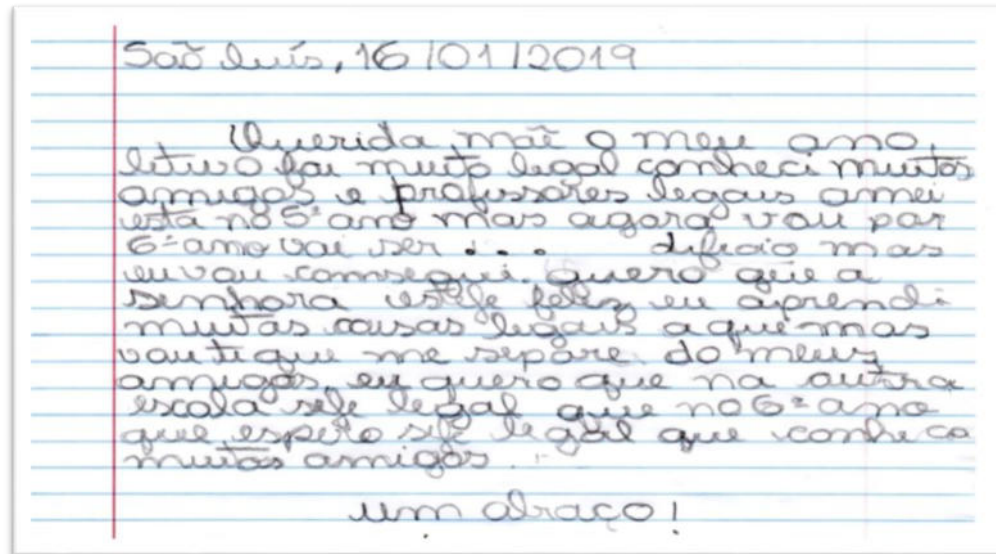 São Luís, 16/01/2019
Querida mãe o meu ano
letivo foi muito legal conheci muitos
amigos e professores legais amei
está no 5º ano mas agora vou par
6º ano vai ser ... dificio mas
eu vou consegui. quero que a
senhora esteje feliz eu aprendi
muitas coisas legais aque mas
vou ti que me separe do meus
amigos, eu quero que na outra
escola seje legal que no 6º ano
que espero seje legal que conheca
muitos amigos.
um abraço!